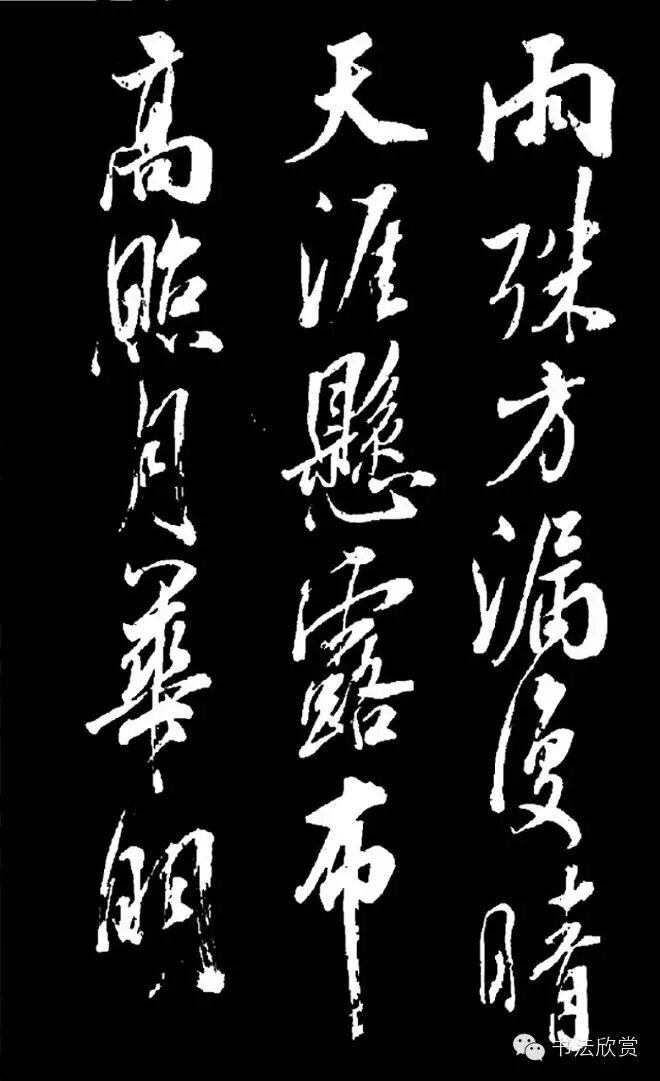 雨殊方漏復晴
天涯懸露布
高照月華明
书法欣赏